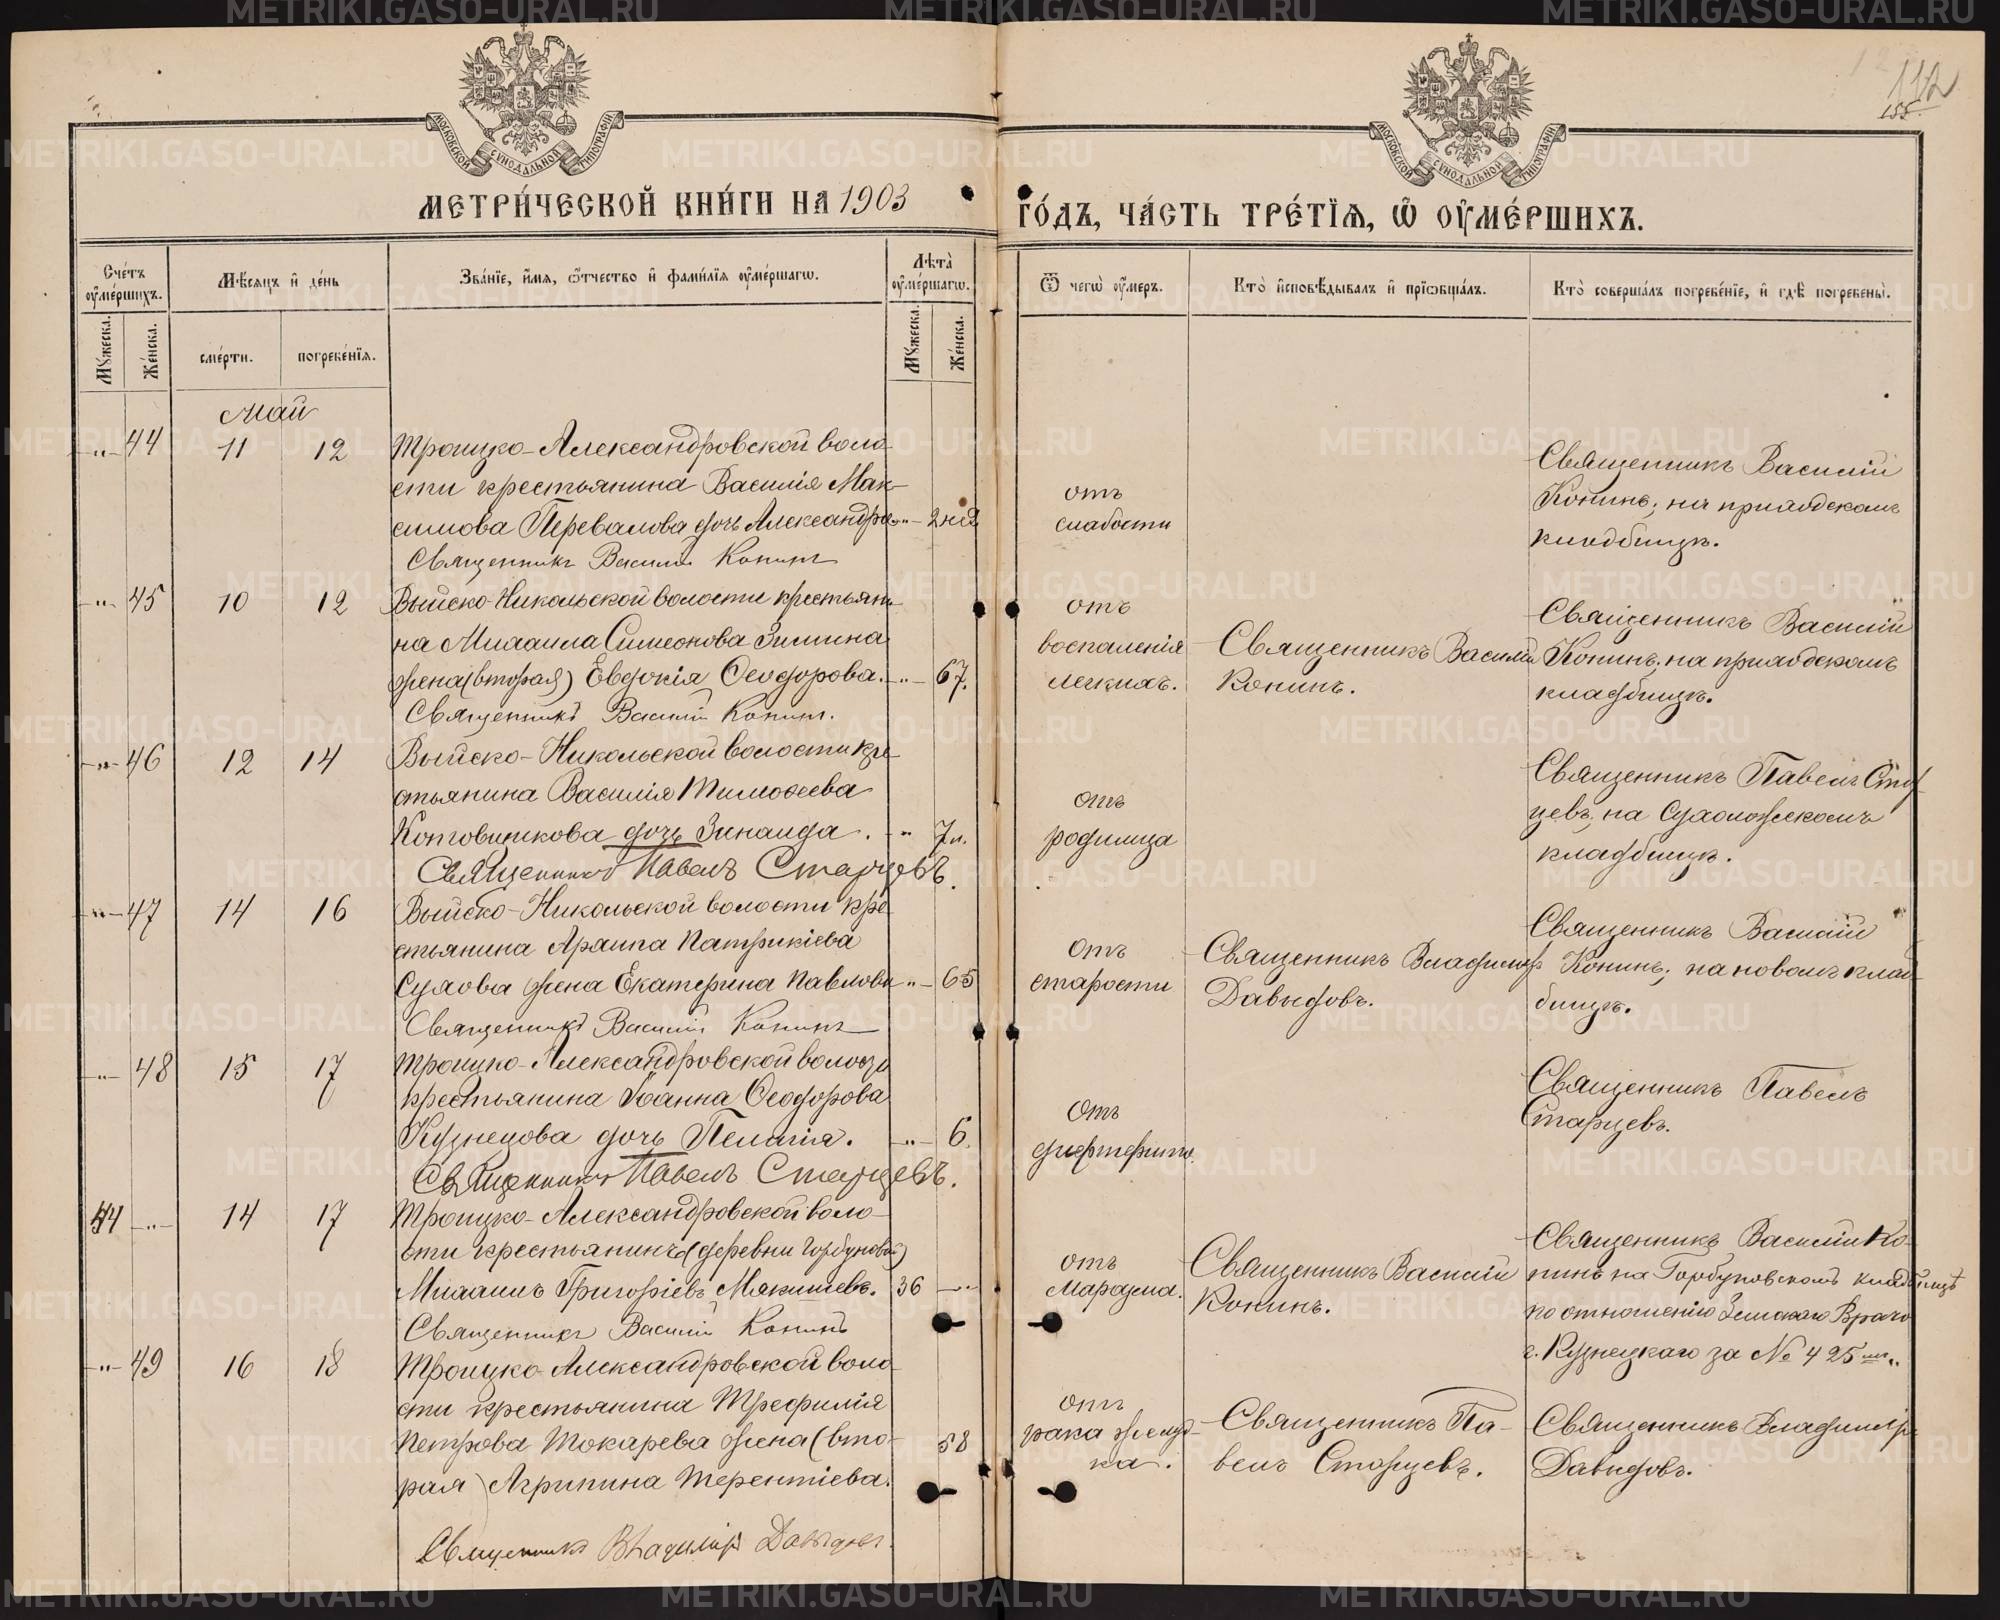 METRIKI.GASO-URAL.RU
112
155.
МОСКОВСКОЙ СѴНОДАЛЬНОЙ ТИПОГРАФІИ
МОСКОВСКОЙ СѴНОДАЛЬНОЙ ТИПОГРАФІИ
МЕТРИ́ЧЕСКОЙ КНИ́ГИ НА 1903 ГО́ДЪ, ЧА́СТЬ ТРЕ́ТІѦ, Ѡ҆ ОУ҆МЕ́РШИХЪ.
Сче́тъ оу҆ме́ршихъ.
Мѣ́сяцъ и҆ де́нь
Зва́ніе, и҆́мя, ѻ҆́тчество и҆ фами́лїя оу҆ме́ршагѡ.
Лѣ́та оу҆ме́ршагѡ.
Ѿ чегѡ̀ оу҆́меръ.
Кто̀ и҆сповѣ́дывалъ и҆ прїѡбща́лъ.
Кто̀ соверша́лъ погребе́нїе, и҆ гдѣ̀ погребены̀.
Мꙋ́жеска.
Же́нска.
сме́рти.
погребе́нїя.
Мꙋ́жеска.
Же́нска.
Май
-„- 44 11 12
Троицко-Александровской воло-
сти крестьянина Василія Мак-
симова Перевалова дочь Александра -„- 2 нед
Священникъ Василій Конинъ
отъ
слабости
Священникъ Василій
Конинъ; на приходскомъ
кладбищѣ.
-„- 45 10 12
Выйско-Никольской волости крестьяни-
на Михаила Симеонова Зимина
жена (вторая) Евдокія Ѳеодорова. -„- 67.
Священникъ Василій Конинъ.
отъ
воспаленія
легкихъ.
Священникъ Василій
Конинъ.
Священникъ Василій
Конинъ; на приходскомъ
кладбищѣ.
-„- 46 12 14
Выйско-Никольской волости кре-
стьянина Василія Тимоѳеева
Котовщикова дочь Зинаида. -„ 7 н.
Священникъ Павелъ Старцевъ.
отъ
родимца
Священникъ Павелъ Стар
цевъ, на Сухоложскомъ
кладбищѣ.
-„- 47 14 16
Выйско-Никольской волости кре-
стьянина Архипа Патрикіева
Сухова жена Екатерина Павлова „- 65
Священникъ Василій Конинъ
отъ
старости
Священникъ Владиміръ
Давыдовъ.
Священникъ Василій
Конинъ; на новомъ клад
бищѣ.
-„- 48 15 17
Троицко-Александровской волости
крестьянина Іоанна Ѳеодорова
Кузнецова дочь Пелагія. -„- 6.
Священникъ Павелъ Старцевъ.
Отъ
дифтерита.
Священникъ Павелъ
Старцевъ.
44 -„- 14 17
Троицко-Александровской воло-
сти крестьянинъ (деревни Горбуновой)
Михаилъ Григоріевъ Мякишевъ. 36 -„-
Священникъ Василій Конинъ
отъ
маразма.
Священникъ Василій
Конинъ.
Священникъ Василій Ко-
нинъ на Горбуновскомъ кладбищѣ
по отношенію Земскаго Врача
г. Кузнецкаго за № 425
-„- 49 16 18
Троицко-Александровской воло-
сти крестьянина Трефилія
Петрова Токарева жена (вто-
рая) Агрипина Терентіева. 58
Священникъ Владиміръ Давыдовъ.
отъ
рака желуд-
ка.
Священникъ Па-
велъ Старцевъ.
Священникъ Владиміръ
Давыдовъ.